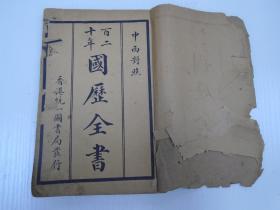 中西對照
百二十年
國歷全書
香港統一圖書局發行